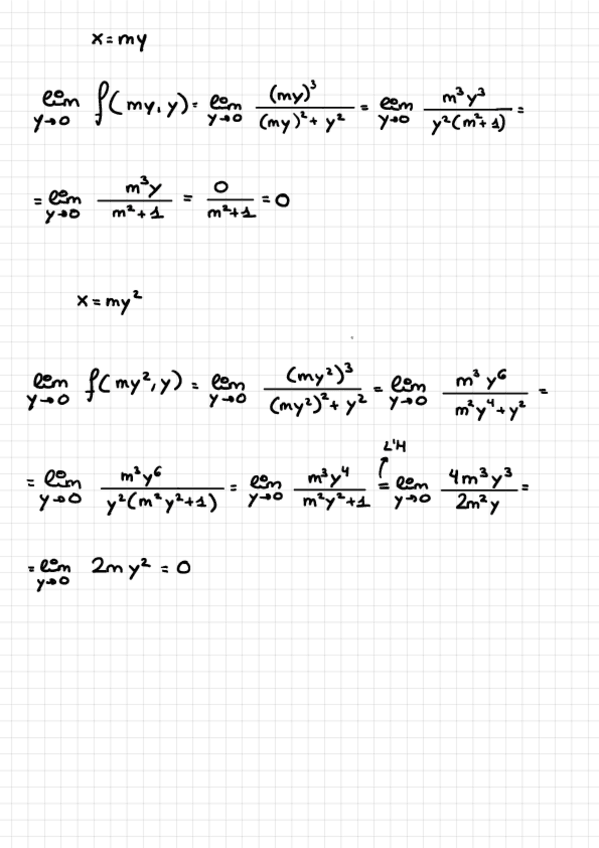 x = my
lim y→0 f(my, y) = lim y→0 (my)³/((my)² + y²) = lim y→0 m³y³/(y²(m²+1)) =
= lim y→0 m³y/(m²+1) = 0/(m²+1) = 0
x = my²
lim y→0 f(my², y) = lim y→0 (my²)³/((my²)² + y²) = lim y→0 m³y⁶/(m²y⁴+y²) =
L'H
= lim y→0 m³y⁶/(y²(m²y²+1)) = lim y→0 m³y⁴/(m²y²+1) = lim y→0 4m³y³/(2m²y) =
= lim y→0 2my² = 0